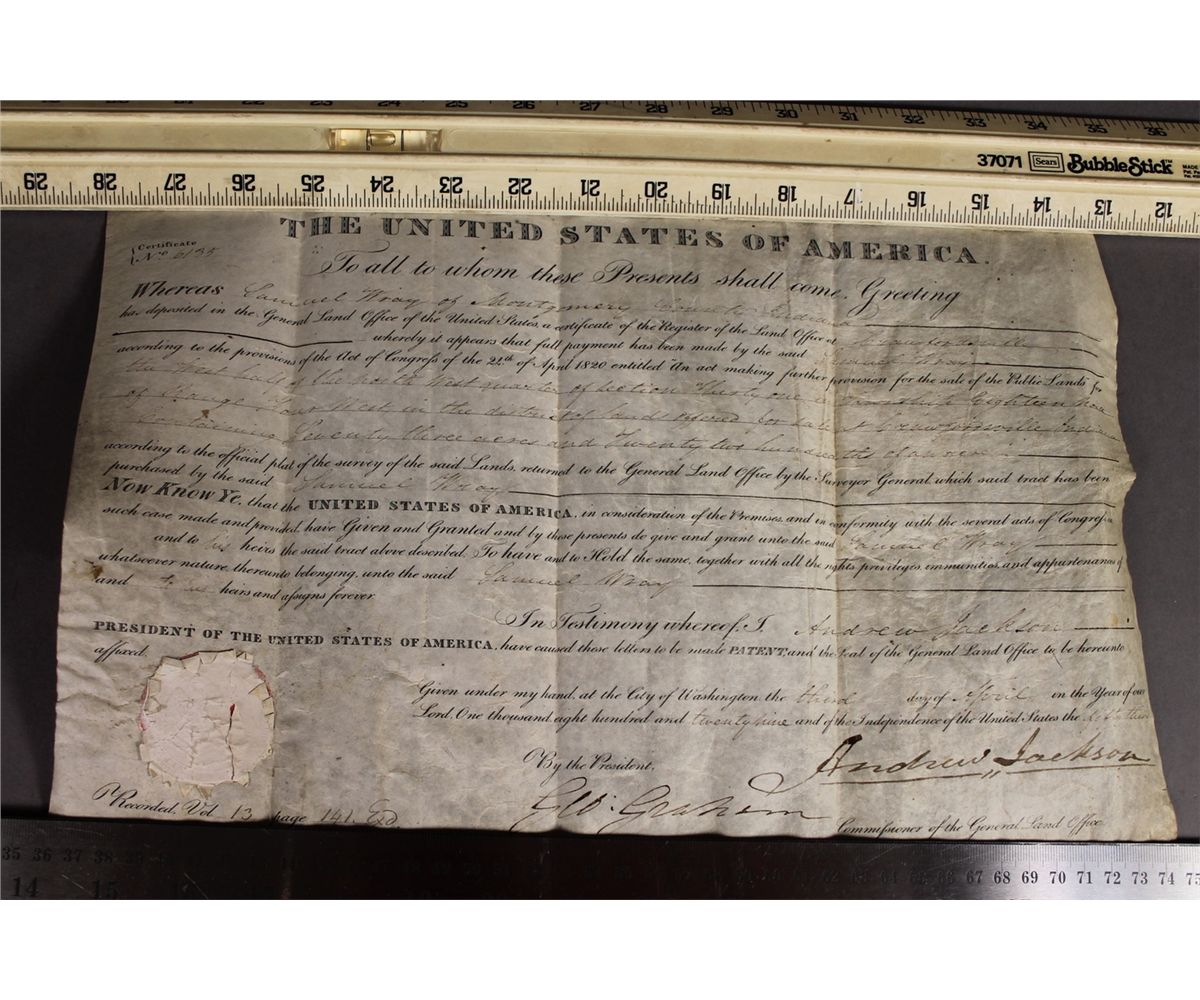 23 24 25 26 27 28 29 30 31 32 33 34 35 36
37071 Sears BubbleStick
29 28 27 26 25 24 23 22 21 20 19 18 17 16 15 14 13 12
THE UNITED STATES OF AMERICA.
Certificate
No. 6135
To all to whom these Presents shall come, Greeting
Whereas Samuel Wray of Montgomery County Indiana
has deposited in the General Land Office of the United States, a certificate of the Register of the Land Office at Crawfordsville
whereby it appears that full payment has been made by the said Samuel Wray
according to the provisions of the Act of Congress of the 24th of April 1820 entitled An act making further provision for the sale of the Public Lands for
the West half of the North West quarter of Section Thirty one in Township Eighteen
of Range Four West in the district of lands offered for sale at Crawfordsville Indiana
Containing Seventy three acres and Twenty two hundredths of an acre
according to the official plat of the survey of the said Lands, returned to the General Land Office by the Surveyor General, which said tract has been
purchased by the said Samuel Wray
Now Know Ye, that the UNITED STATES OF AMERICA, in consideration of the Premises, and in conformity with the several acts of Congress in
such case made and provided, have Given and Granted and by these presents do give and grant unto the said Samuel Wray
and to his heirs the said tract above described, To have and to Hold the same, together with all the rights privileges, immunities, and appurtenances of
whatsoever nature, thereunto belonging, unto the said Samuel Wray
and to his heirs and assigns forever.
In Testimony whereof, I, Andrew Jackson
PRESIDENT OF THE UNITED STATES OF AMERICA, have caused these letters to be made PATENT, and the Seal of the General Land Office to be hereunto
affixed.
Given under my hand, at the City of Washington, the third day of April in the Year of our
Lord, One thousand eight hundred and twenty nine and of the Independence of the United States the
Andrew Jackson
By the President,
Geo: Graham
Commissioner of the General Land Office
Recorded, Vol 13 page 141. Exd.
35 36 37 38 39 67 68 69 70 71 72 73 74 75
14 15